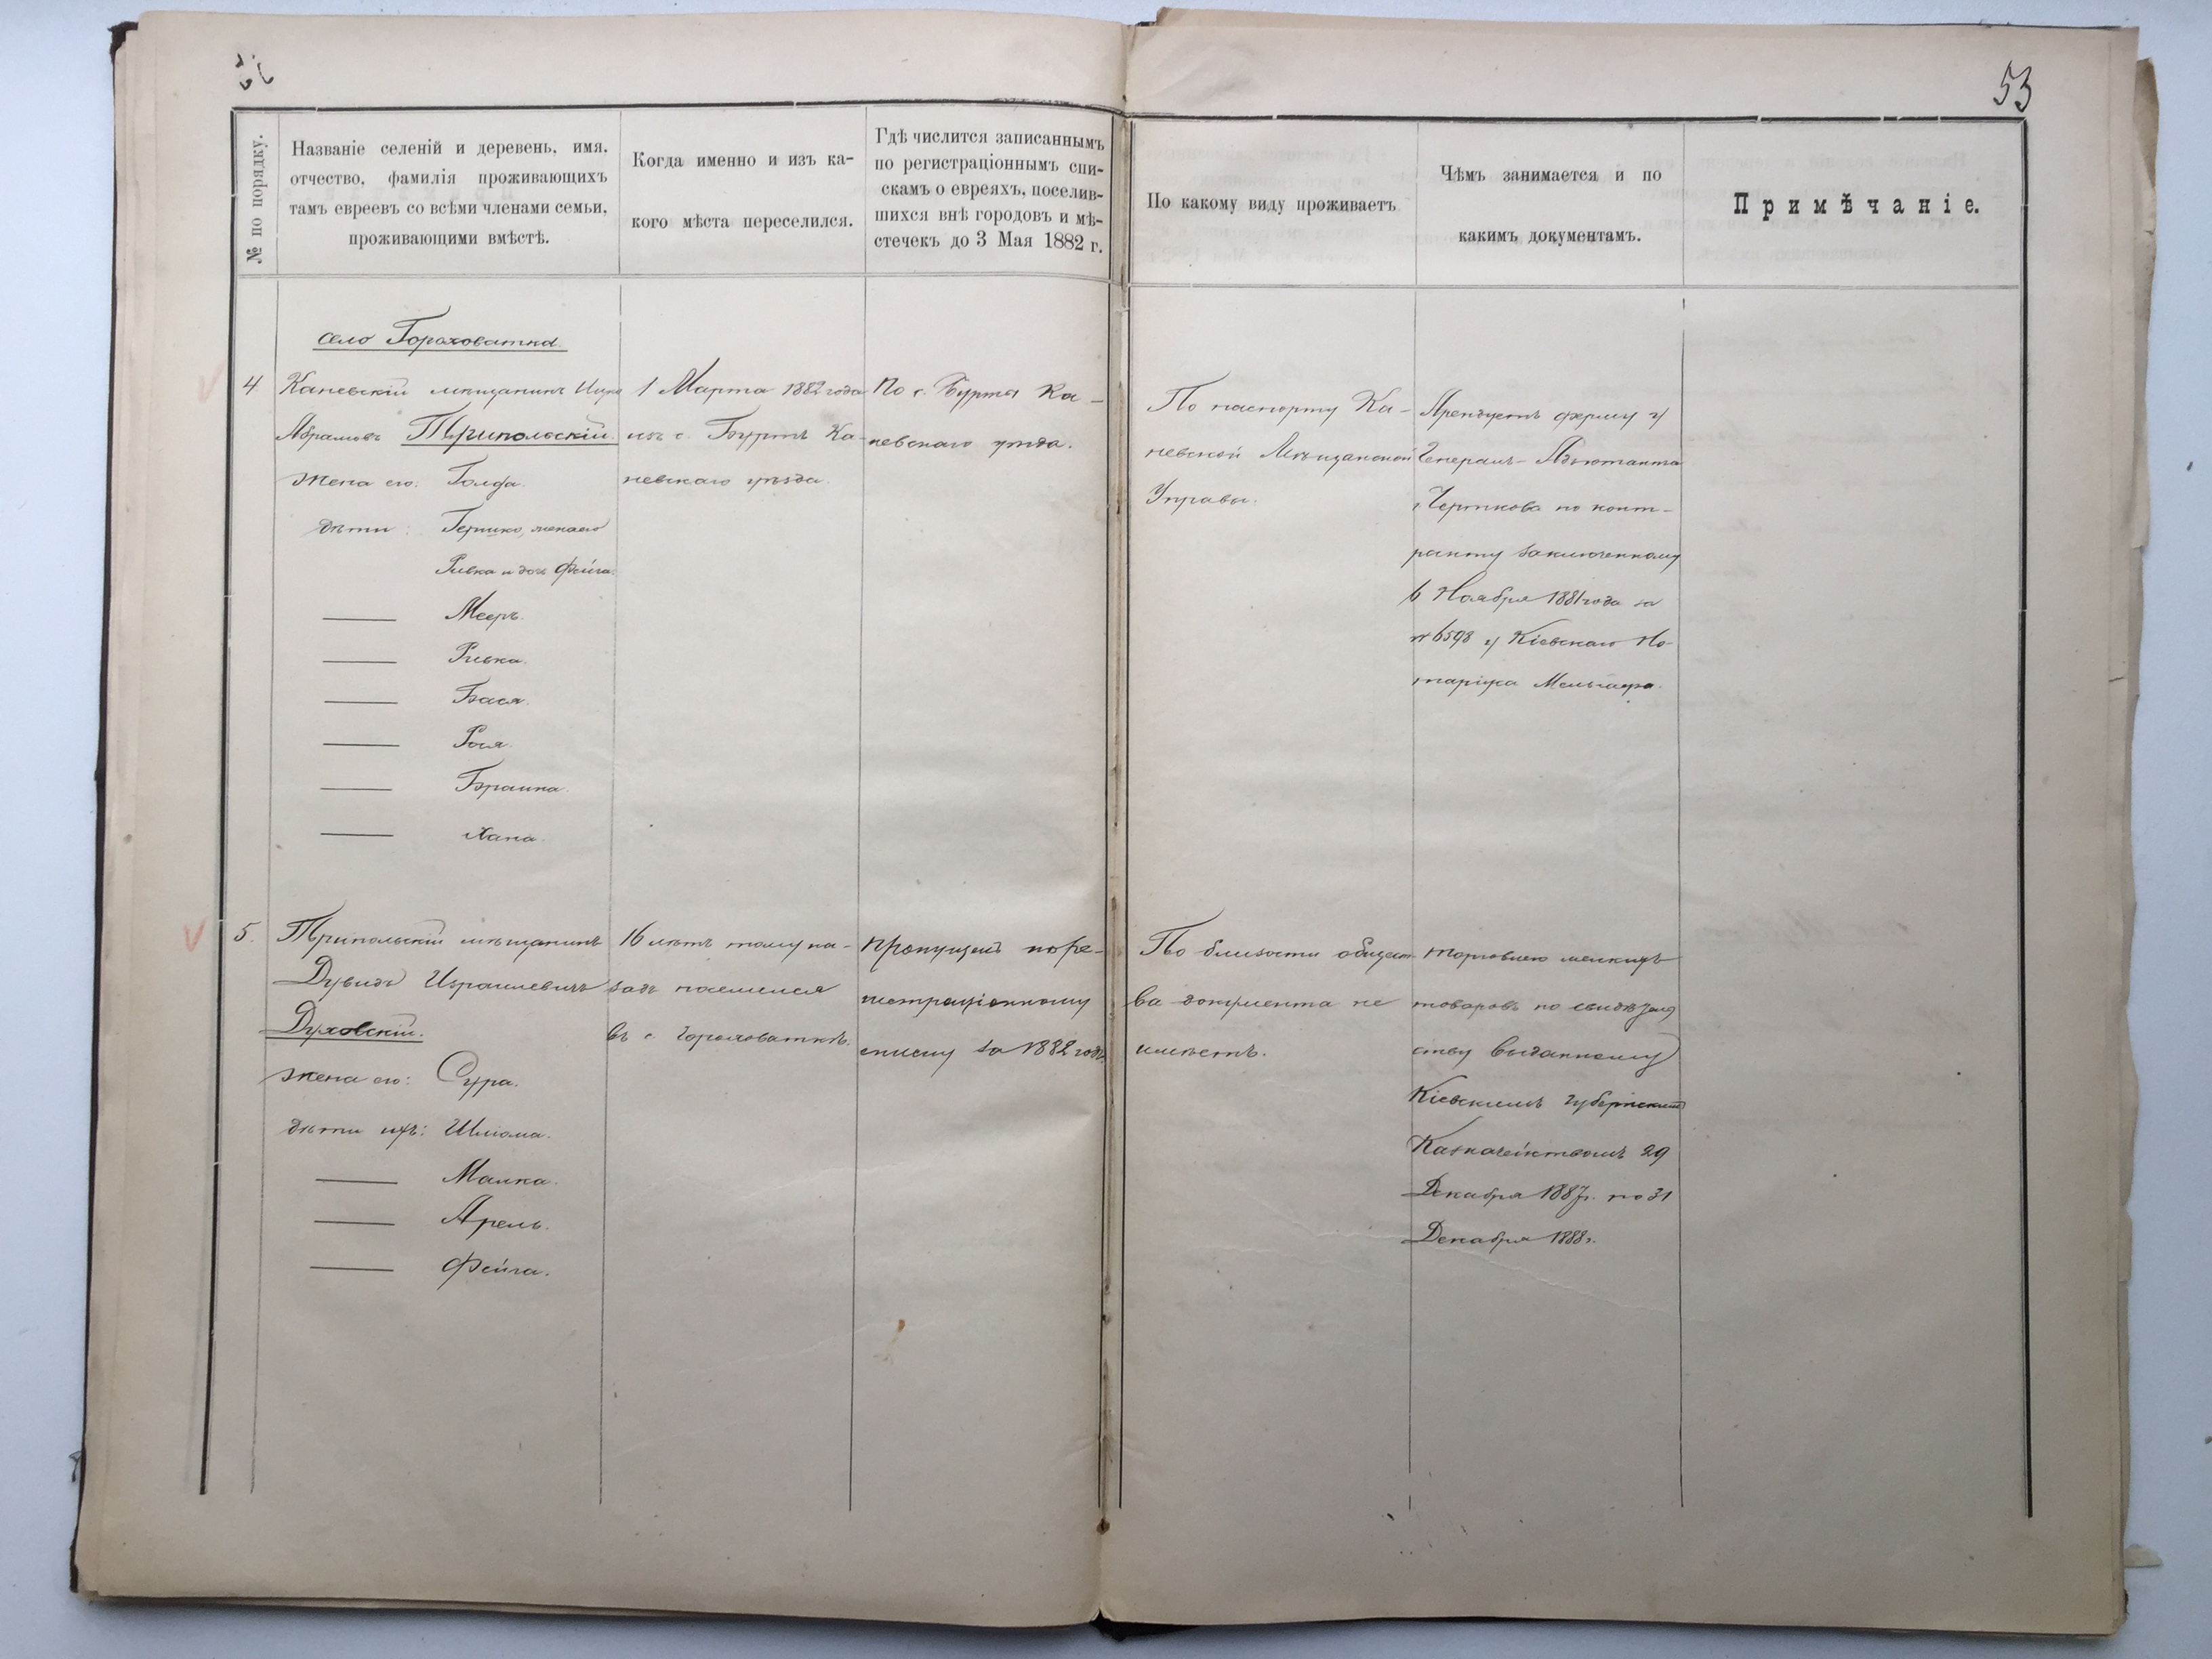 53
№ по порядку.
Названіе селеній и деревень, имя,
отчество, фамилія проживающихъ
тамъ евреевъ со всѣми членами семьи,
проживающими вмѣстѣ.
Когда именно и изъ ка-
кого мѣста переселился.
Гдѣ числится записаннымъ
по регистраціоннымъ спи-
скамъ о евреяхъ, поселив-
шихся внѣ городовъ и мѣ-
стечекъ до 3 Мая 1882 г.
По какому виду проживаетъ
Чѣмъ занимается и по
какимъ документамъ.
Примѣчаніе.
село Гороховатка.
4
Каневскій мѣщанинъ Ицко
Абрамовъ Трипольскій.
жена его: Голда.
дѣти: Гершко, жена его
Ривка и дочь Фейга.
Мееръ.
Ривка.
Бася.
Рося.
Браина.
Хана.
1 Марта 1882 года
изъ с. Буртъ Ка-
невскаго уѣзда.
По с. Бурты Ка-
невскаго уѣзда.
По паспорту Ка-
невской Мѣщанской
Управы.
Арендуетъ ферму у
Генералъ-Адъютанта
Черткова по конт-
ракту заключенному
6 Ноября 1881 года за
№ 6598 у Кіевскаго Но-
таріуса
5.
Трипольскій мѣщанинъ
Дувидъ Израилевичъ
Духовскій.
жена его: Сура.
дѣти ихъ: Шлiома.
Малка.
Арель.
Фейга.
16 лѣтъ тому на-
задъ поселился
въ с. Гороховаткѣ.
Пропущенъ по ре-
гистраціонному
списку за 1882 годъ.
По близости общест
ва документа не
имѣетъ.
Торговлею мелкихъ
товаровъ по свидѣтель
ству выданному
Кіевскимъ Губернскимъ
Казначействомъ 29
Декабря 1887 г. по 31
Декабря 1888 г.